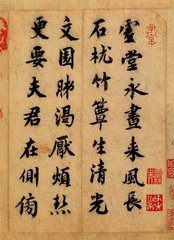 虚堂永晝来風長
石枕竹簟生清光
文園睇渴厭煩熱
更要夫君在側傍